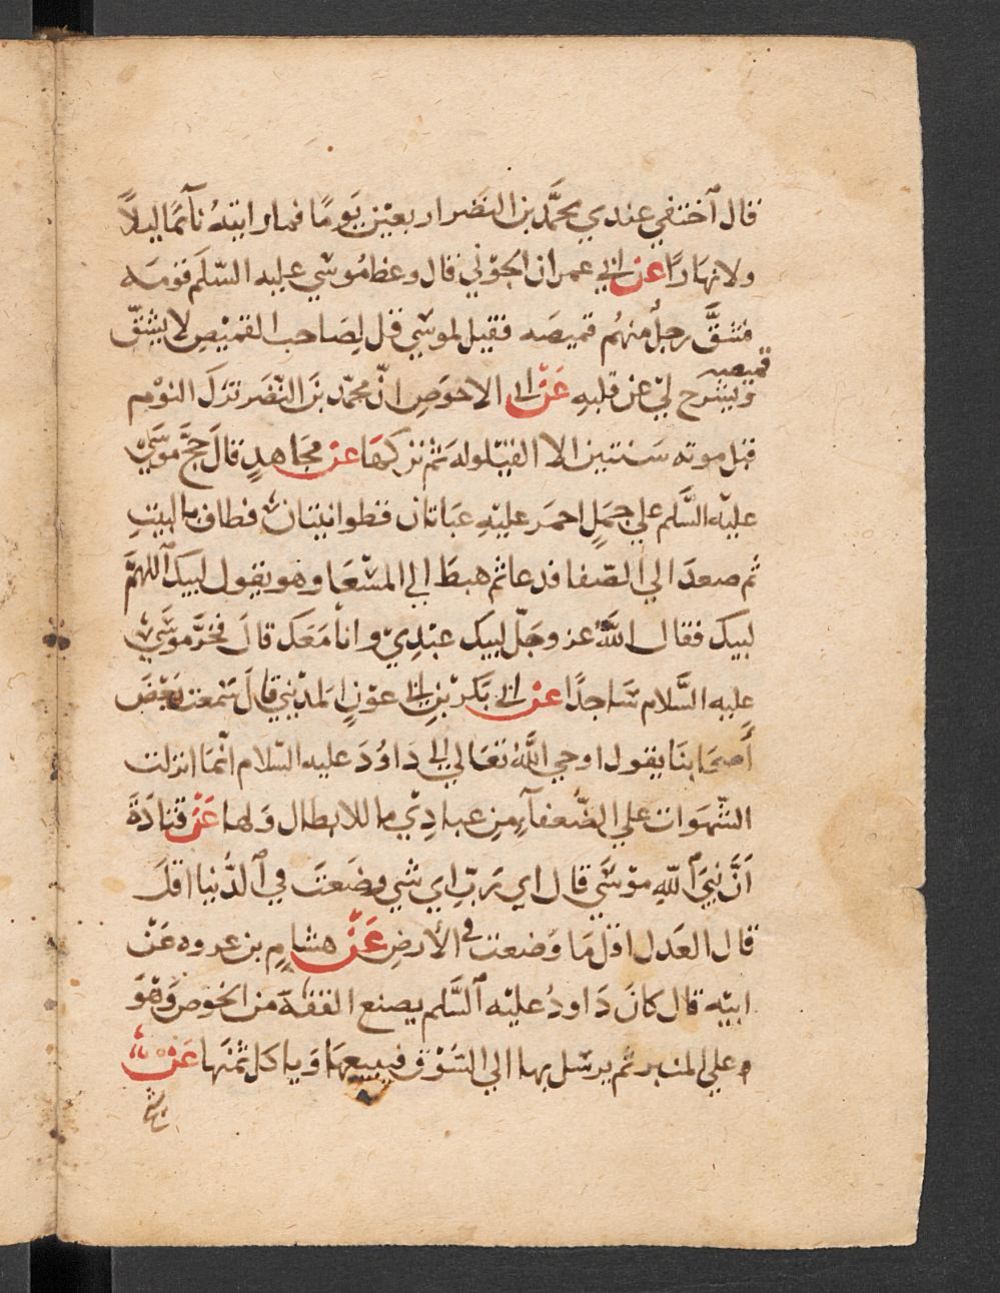 قال اختفي عندي محمَّد بن النضر اربعين يَومًا فما رايتهُ نآئمًا ليلاً
ولا نهارًا عن ابي عمران الجوْني قال وعظ مُوسَي عليه السّلَم قومَه
فشقَّ رجلٌ منهُم قميصَه فقيل لموسَي قل لِصَاحب القميْصِ لا يشقّ
قميصه
وليشرح لي عن قلبهِ عَنْ ابي الاحوَصِ انّ محمّد بنَ النّضَر ترَك النوْم
قبل موته سَنتين الا القيْلوله ثم تركهَا عن مجَاهدٍ قالَ حَجَّ موسَي
عليْه السَّلَم علي جمَلٍ احمَر عليْهِ عبَاتان قطوانيتان فطاف بالبيتِ
ثم صعدَ الي الصّفا فدعا ثم هبطَ الي المسْعَا وهو يقول لبيك اللهمَّ
لبيك فقال اللهُ عز وجَلّ لبيك عبْدِيْ وانا مَعَك قالَ فخرَّ موسَي
عليه السَّلام سَاجدًا عن ابي بَكرْ بْنِ ابي عوْنٍ المدْيني قالَ سَمعت بَعْضَ
أصحَابنَا يقول اوحي اللهُ تعَالي الي دَاوُدَ عليه السّلام انّمَا انزلت
الشّهوَات علي الضُّعفآءِ مِن عبادِيْ ما للابطال وَلها عَنْ قتادَةَ
اَنَّ نبيَ اللهِ موْسَي قال اي رَبّ اي شي وضَعتَ في الدُّنيا اقلّ
قال العَدل اقلّ مَا وَضعت في الأرضِ عَنْ هشامٍ بن عروه عَنْ
ابيْه قال كانَ دَاودُ عليْه السَّلَم يصنع القفةَ من الخوصِ وَهوَ
علي المنبر ثم يرسَل بها الي السَّوْق فيبيعهَا وَياكل ثمنَها عَنْ